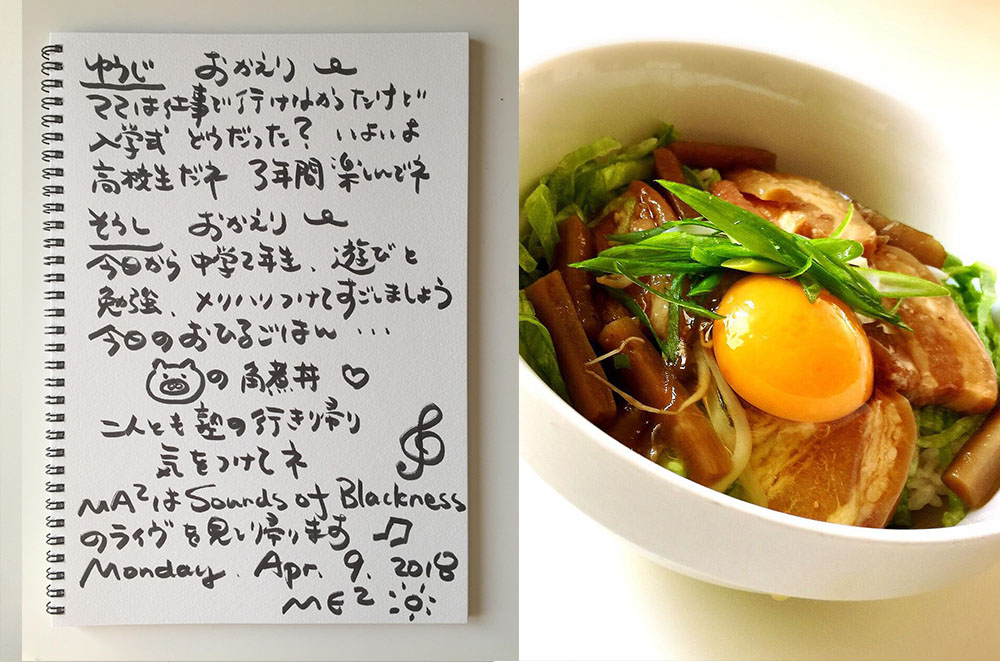 ゆうじ おかえり
ママは仕事で行けなかったけど
入学式 どうだった? いよいよ
高校生だネ 3年間楽しんでネ
そうし おかえり
今日から 中学2年生、遊びと
勉強、メリハリつけてすごしましょう
今日のおひるごはん…
の角煮丼♡
二人とも塾の行き帰り
気をつけてネ
MA²は Sounds of Blackness
のライヴを見て帰ります♫
Monday. Apr. 9. 2018
ME²